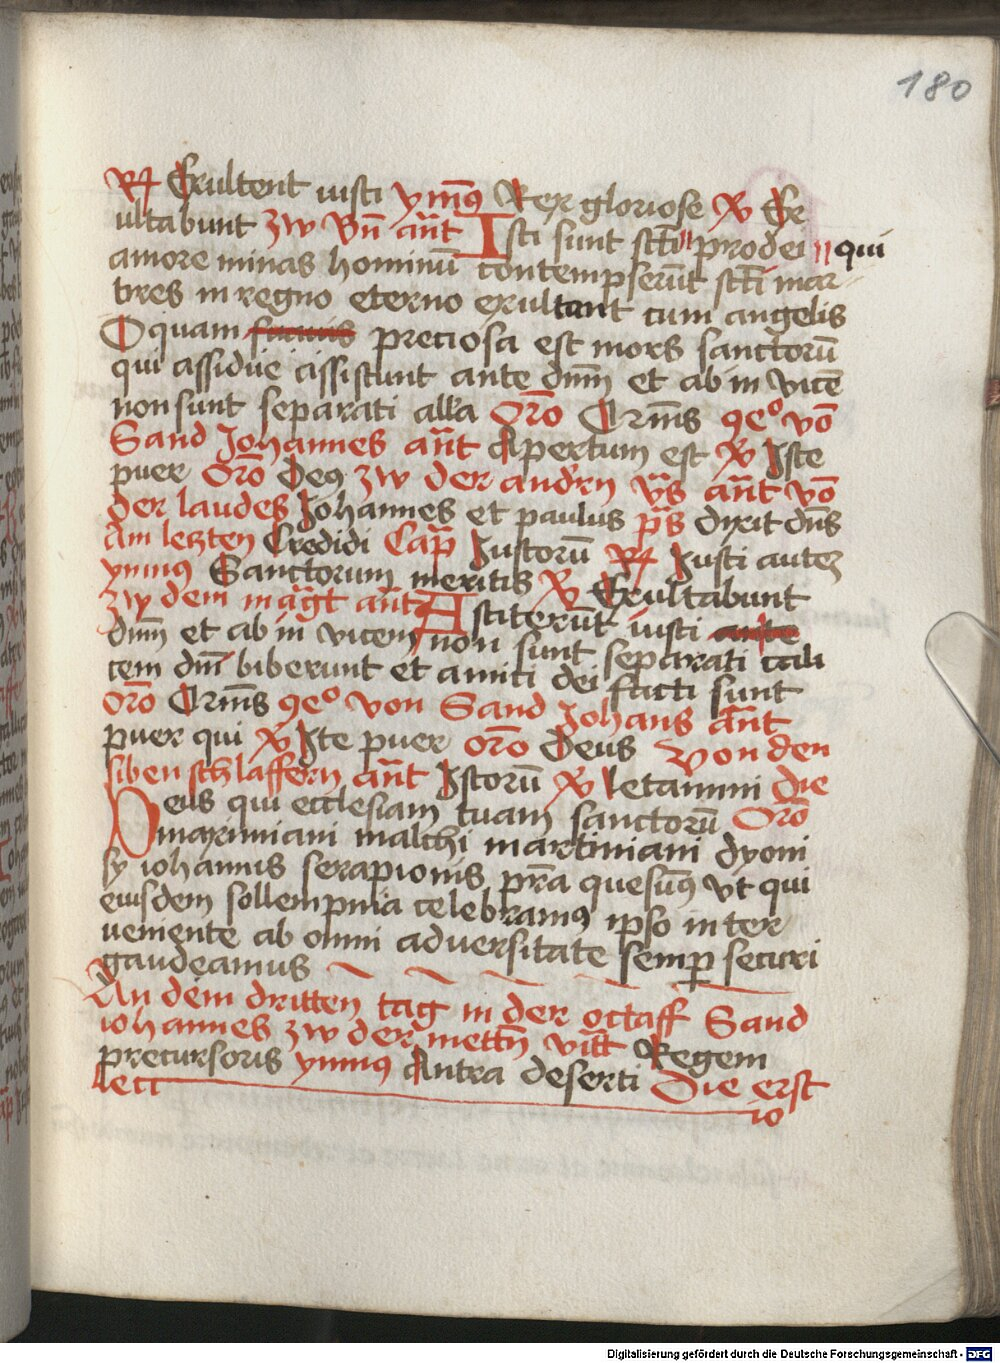 180
R Exultent iusti ym̄9 Rex gloriose V Ex
ultabunt zw Bn̄ an̄t Isti sunt scti "pro dei " qui
amore minas hominū contempserūt scti mar
tires in regno eterno exultant cum angelis
O quam suauis preciosa est mors sanctorū
qui assidue assistunt ante dn̄m et ab in vicē
non sunt separati all'a Or̄o Crm̄s 9c° vō
Sand Johannes an̄t Apertum est V Iste
puer Or̄o De9 zw der andr̄n v̄s an̄t vō
der laudes Johannes et paulus p̄s dixit dn̄s
Am leczten Credidi Cap̄ Iustorū R Iusti autez
ymnus Sanctorum meritis V Exultabunt
zw dem mag̃t an̄t Astiterūt iusti ante
dn̄m et ab in vicem non sunt separati cali
cem dn̄i biberunt et amici dei facti sunt
or̄o Crm̄s 9c° von Sand Johans an̄t
puer qui V Iste puer or̄o Deus von den
siben schlaffern an̄t Istorū V letamini die
Deus qui ecclesiam tuam sanctorū Or̄o
maximiani malchi martiniani dyoni
sy iohannis serapionis pr̄a quesum9 vt qui
eiusdem sollempnia celebram9 ipso inter
ueniente ab omni aduersitate semp̲ securi
gaudeamus
An dem dritten tag in der octaff Sand
iohannes zw der mettn̄ vitt̄ Regem
precursoris ymn9 Antra deserti Die erst
lect io
Digitalisierung gefördert durch die Deutsche Forschungsgemeinschaft - DFG